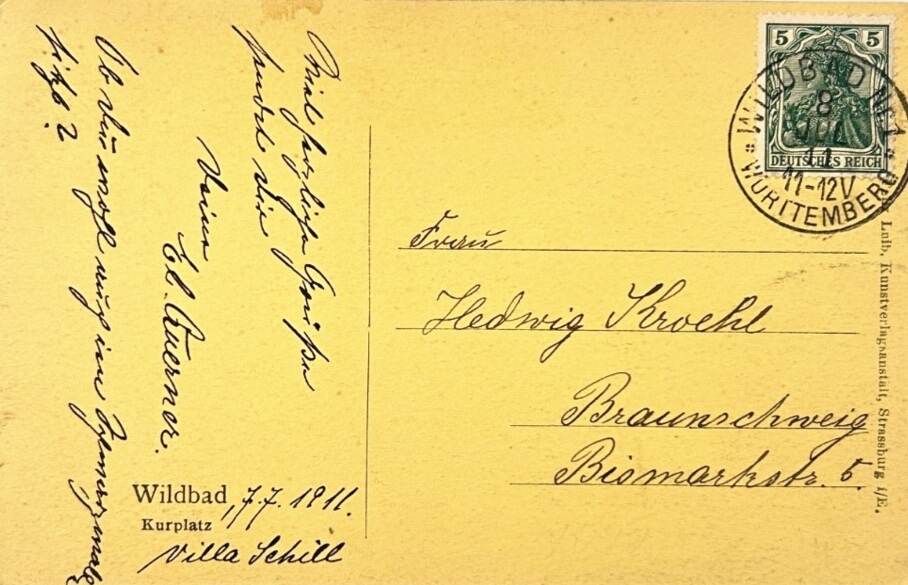 Viel herzliche Grüße
sendet dir
deine
El. Querner.
Ob du wohl auch im
Wildbad, 7.7.1911.
Kurplatz
Villa Schill
5 5
DEUTSCHES REICH
WILDBAD No 1
8 JUL 11
11-12V
WÜRTTEMBERG
Frau
Hedwig Kroehl
Braunschweig
Bismarkstr. 5
Luib, Kunstverlagsanstalt, Strassburg i/E.